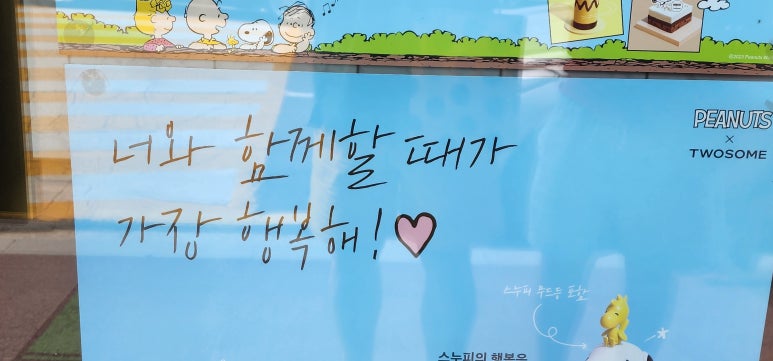 PEANUTS
×
TWOSOME
너와 함께할 때가
가장 행복해!
스누피 무드등 포함
스누피의 행복은